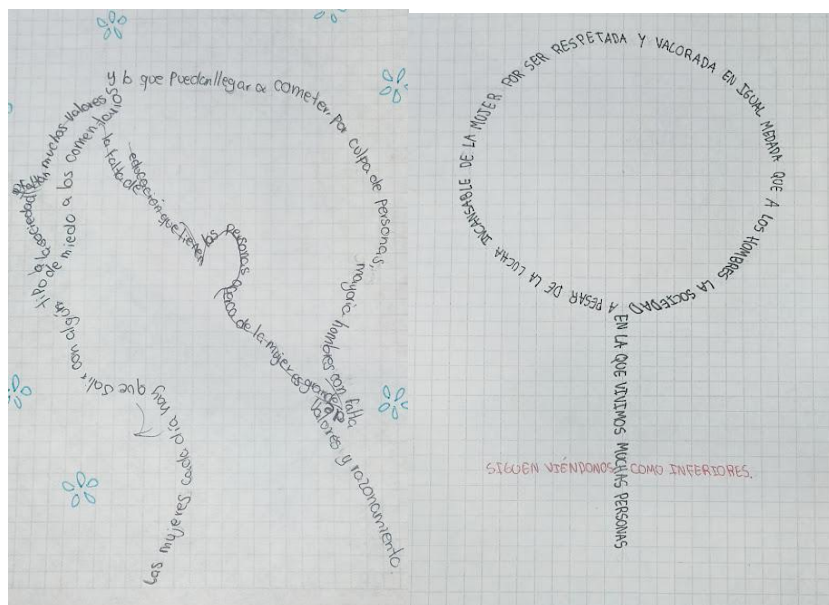 Las mujeres cada día hay que salir con algún tipo de miedo a los comentarios
y lo que puedan llegar a cometer, por culpa de personas,
mayoría hombres con falta
valores y razonamiento.
a la sociedad faltan muchos valores
la falta de
educación que tienen las personas a cerca de la mujer es grande
A PESAR DE LA LUCHA INCANSABLE DE LA MUJER POR SER RESPETADA Y VALORADA EN IGUAL MEDADA QUE A LOS HOMBRES LA SOCIEDAD
EN LA QUE VIVIMOS MUCHAS PERSONAS
SIGUEN VIÉNDONOS COMO INFERIORES.